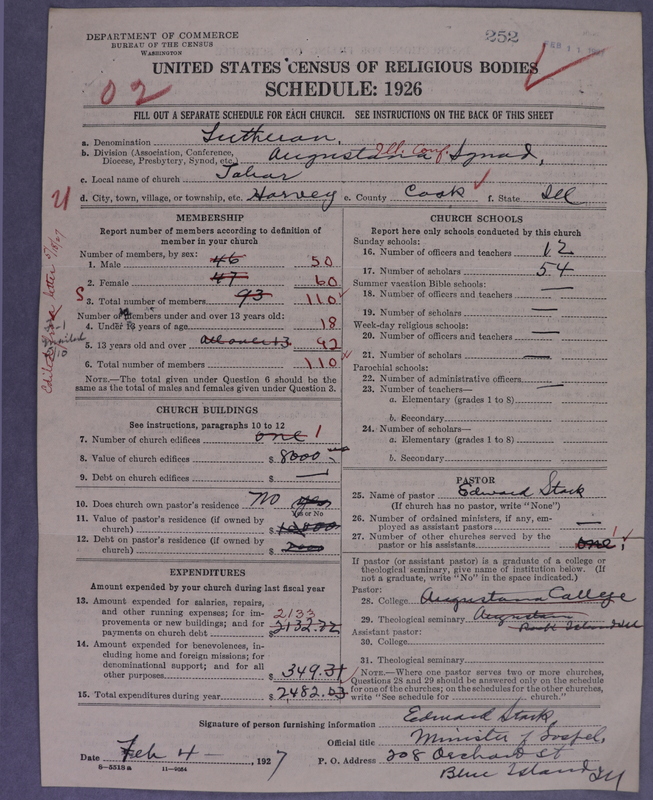 DEPARTMENT OF COMMERCE
BUREAU OF THE CENSUS
WASHINGTON
252
FEB 11
UNITED STATES CENSUS OF RELIGIOUS BODIES
02
SCHEDULE: 1926
FILL OUT A SEPARATE SCHEDULE FOR EACH CHURCH. SEE INSTRUCTIONS ON THE BACK OF THIS SHEET
a. Denomination Lutheran,
b. Division (Association, Conference, Diocese, Presbytery, Synod, etc.) Augustana Ill. Conf. Synod,
c. Local name of church Tabor
d. City, town, village, or township, etc. Harvey e. County Cook f. State Ill
MEMBERSHIP
Report number of members according to definition of member in your church
Number of members, by sex:
1. Male 46 50
2. Female 47 60
3. Total number of members 93 110
Number of members under and over 13 years old:
4. Under 13 years of age 18
5. 13 years old and over all over 13 92
6. Total number of members 110
NOTE.—The total given under Question 6 should be the same as the total of males and females given under Question 3.
CHURCH BUILDINGS
See instructions, paragraphs 10 to 12
7. Number of church edifices one 1
8. Value of church edifices $ 8000
9. Debt on church edifices $ —
10. Does church own pastor's residence No yes
Yes or No
11. Value of pastor's residence (if owned by church) $
12. Debt on pastor's residence (if owned by church) $
EXPENDITURES
Amount expended by your church during last fiscal year
13. Amount expended for salaries, repairs, and other running expenses; for improvements or new buildings; and for payments on church debt $ 2133 2132.72
14. Amount expended for benevolences, including home and foreign missions; for denominational support; and for all other purposes $ 349.31
15. Total expenditures during year $ 2482.03
CHURCH SCHOOLS
Report here only schools conducted by this church
Sunday schools:
16. Number of officers and teachers 12
17. Number of scholars 54
Summer vacation Bible schools:
18. Number of officers and teachers —
19. Number of scholars —
Week-day religious schools:
20. Number of officers and teachers —
21. Number of scholars —
Parochial schools:
22. Number of administrative officers —
23. Number of teachers—
a. Elementary (grades 1 to 8)
b. Secondary
24. Number of scholars—
a. Elementary (grades 1 to 8)
b. Secondary
PASTOR
25. Name of pastor Edward Stark
(If church has no pastor, write "None")
26. Number of ordained ministers, if any, employed as assistant pastors —
27. Number of other churches served by the pastor or his assistants one 1
If pastor (or assistant pastor) is a graduate of a college or theological seminary, give name of institution below. (If not a graduate, write "No" in the space indicated.)
Pastor:
28. College Augustana College
29. Theological seminary Augustana
Rock Island Ill
Assistant pastor:
30. College
31. Theological seminary
NOTE.—Where one pastor serves two or more churches, Questions 28 and 29 should be answered only on the schedule for one of the churches; on the schedules for the other churches, write "See schedule for church."
Signature of person furnishing information Edward Stark,
Official title Minister of Gospel,
Date Feb 4 — 1927 P. O. Address 208 Orchard St
Blue Island Ill
8-5318a 11-9084